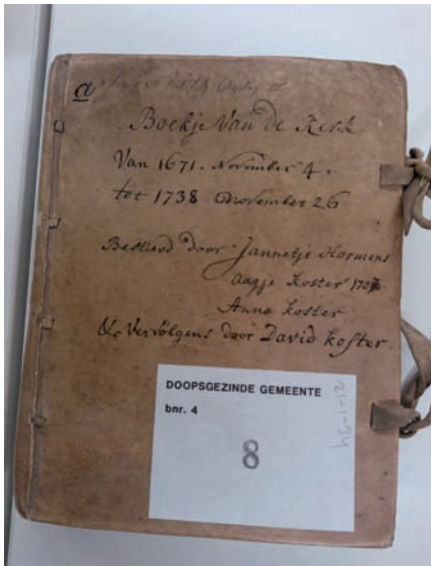 a
Boekje Van de Kerk
Van 1671. November 4.
tot 1738 November 26
Bestierd door Jannetje Hormens
Aagje Koster 1707
Anna Koster
& Vervolgens door David Koster
DOOPSGEZINDE GEMEENTE
bnr. 4
8
21-1-34